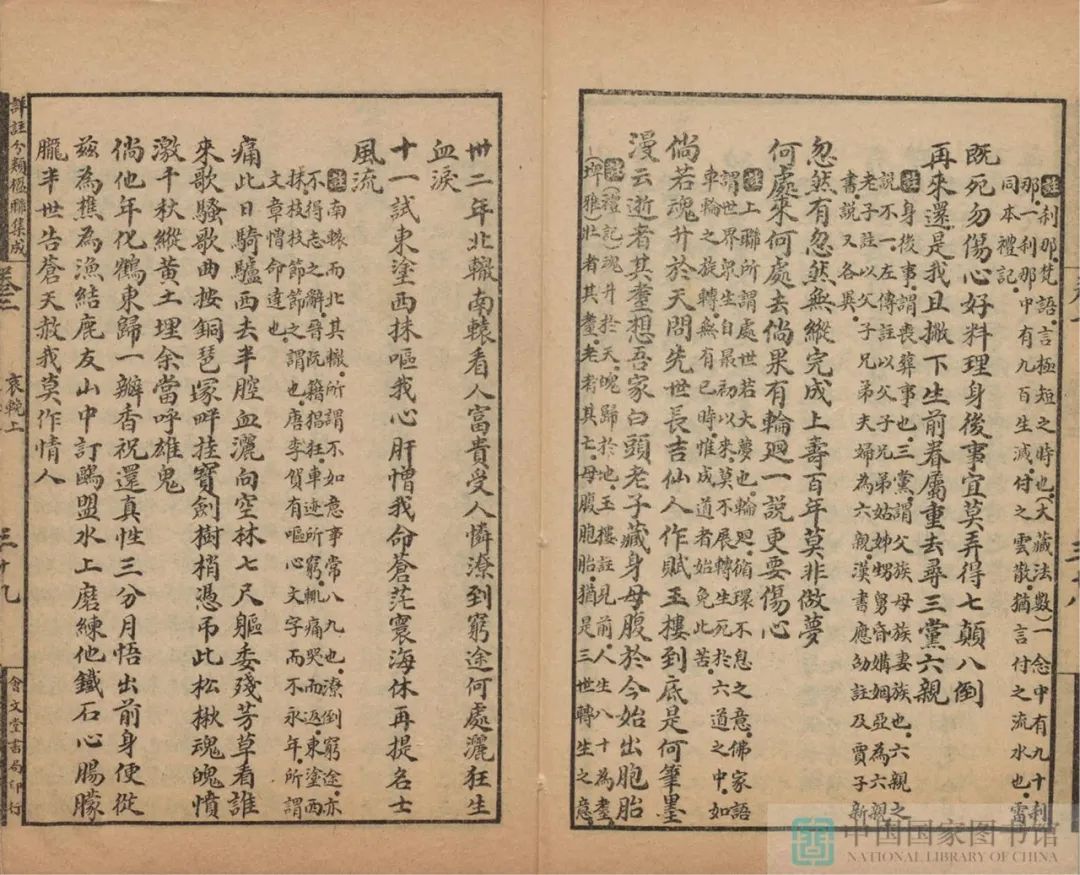 註刹那。梵語。言極短之時也。(大藏法數)一念中有九十刹
那。一刹那中有九百生滅。付之雲散。猶言付之流水也。雷
同本禮記。
既死勿傷心好料理身後事宜莫弄得七顛八倒
再來還是我且撇下生前眷屬重去尋三黨六親
註身後事。謂喪葬事也。三黨。謂父族母族妻族也。六親之
說不一。左傳註以父子兄弟姑姊甥舅昏媾姻亞為六親
老子註以父子兄弟夫婦為六親。漢書應劭註及賈子新
書。說又各異。
忽然有忽然無縱完成上壽百年莫非做夢
何處來何處去倘果有輪廻一說更要傷心
註上聯所謂處世若大夢也。輪廻。循環不息之意。佛家語
謂世界眾生。自最初以來。莫不展轉生死於六道之中。如
車輪之旋轉。無有已時。惟成道者。始免此苦。
倘若魂升於天問先世長吉仙人作賦玉樓到底是何筆墨
漫云逝者其耋想吾家白頭老子藏身母腹於今始出胞胎
註(禮記)魂升於天。魄歸於地。玉樓註見前。人生八十為耋。
(埤雅)壯者其耋。老者其亡。母腹胞胎。猶是三世轉生之意。
卅二年北轍南轅看人富貴受人憐潦到窮途何處灑狂生
血淚
十一試東塗西抹嘔我心肝憎我命蒼茫寰海休再提名士
風流
註南轅而北其轍。所謂不如意事常八九也。潦倒窮途。亦
不得志之辭。晉阮籍猖狂。車迹所窮。輒痛哭而返。東塗西
抹。技技節節之謂也。唐李賀有嘔心文字而不永年。所謂
文章憎命達也。
痛此日騎驢西去半腔血灑向空林七尺軀委殘芳草看誰
來歌騷歌曲按銅琶塚畔挂寶劍樹梢憑吊此松楸魂魄憤
激千秋縱黃土埋余當呼雄鬼
倘他年化鶴東歸一瓣香祝還真性三分月悟出前身便從
茲為樵為漁結鹿友山中訂鷗盟水上磨練他鐵石心腸朦
朧半世告蒼天赦我莫作情人
詳註分類楹聯集成
卷三
哀輓上
三十九
會文堂書局印行
中国国家图书馆
NATIONAL LIBRARY OF CHINA